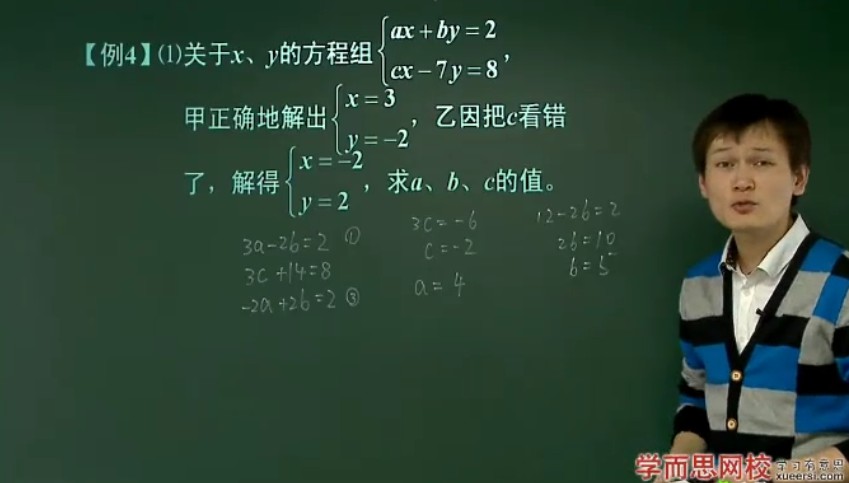 【例4】(1)关于x、y的方程组{ax+by=2
cx-7y=8,
甲正确地解出{x=3
y=-2,乙因把c看错
了，解得{x=-2
y=2,求a、b、c的值。
3a-2b=2 ①
3c+14=8
-2a+2b=2 ③
3c=-6
c=-2
a=4
12-2b=2
2b=10
b=5
学而思网校 学习有意思
xueersi.com